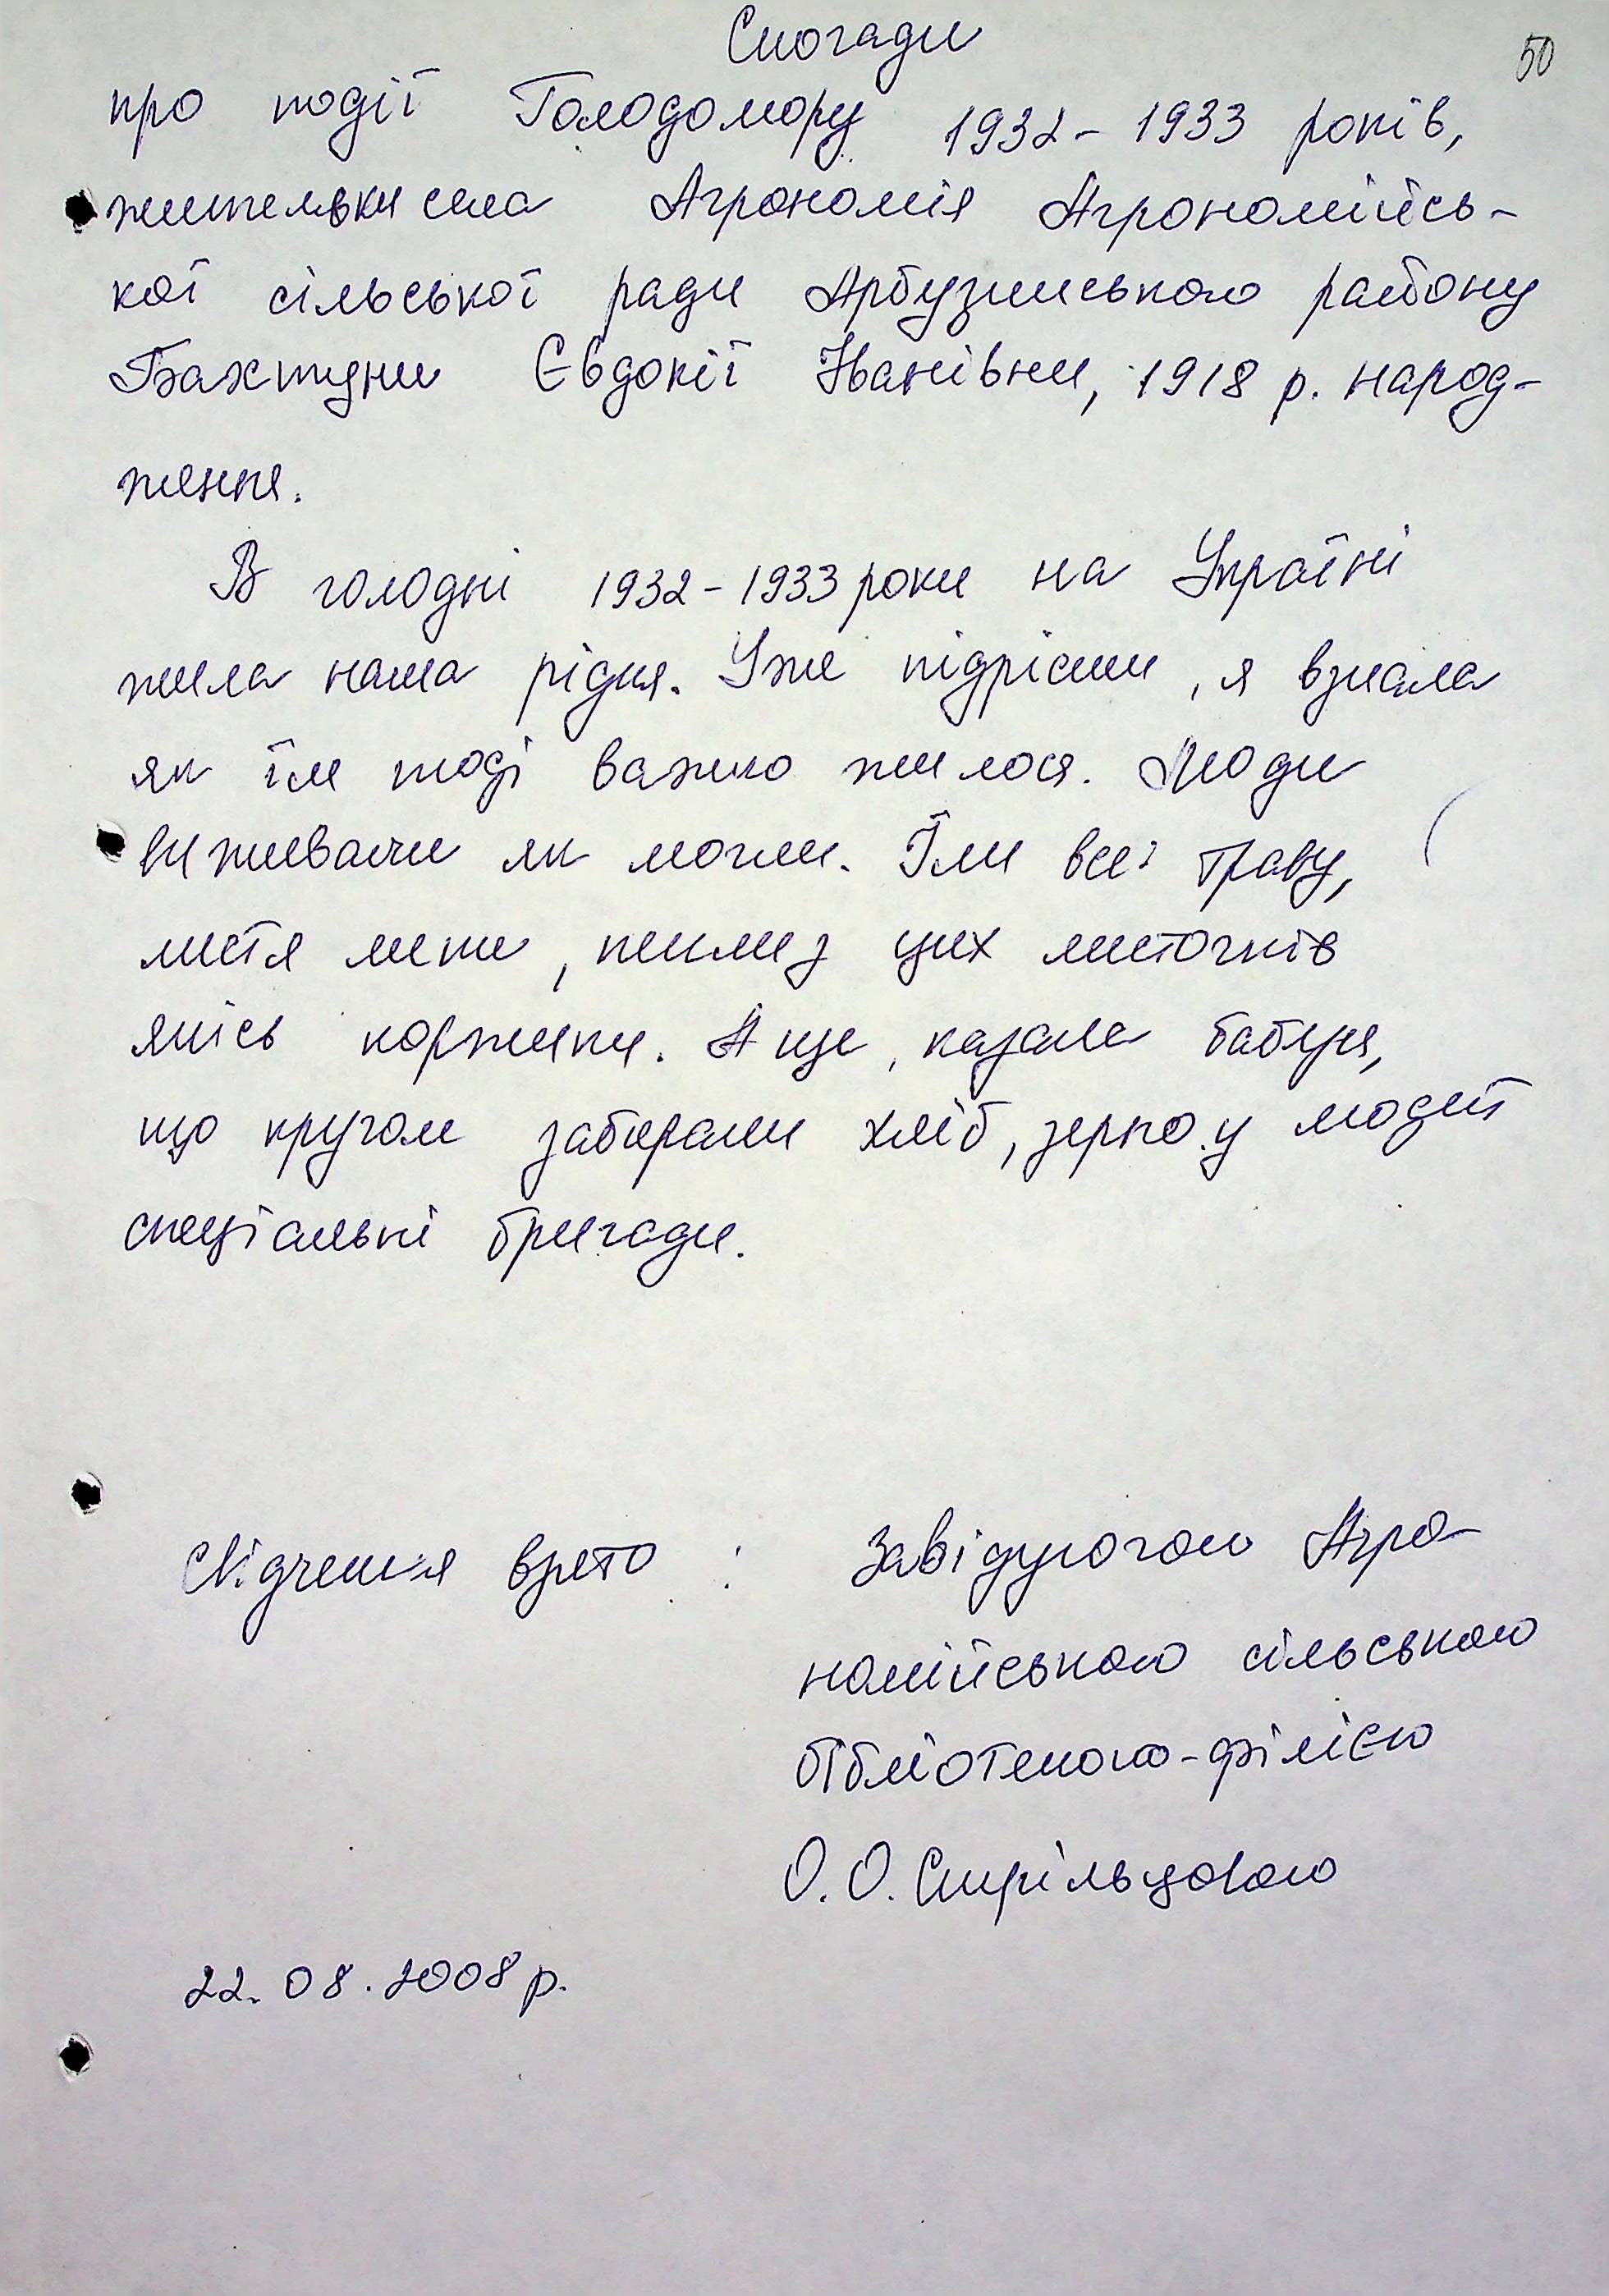 Спогади
50
про події Голодомору 1932-1933 років,
жительки села Агрономія Агрономійсь-
кої сільської ради Арбузинського району
Бахтуни Євдокії Іванівни, 1918 р. народ-
ження.
В голодні 1932-1933 роки на Україні
жила наша рідня. Уже підрісши, я взнала
як їм тоді важко жилося. Люди
виживали як могли. Їли всі траву,
листя липи, пекли з цих листочків
якісь коржики. А ще, казала бабуня,
що кругом забирали хліб, зерно у людей
спеціальні бригади.
Свідчення взято : Завідуючою Агро-
номійською сільською
бібліотекою-філією
О.О. Стрільцовою
22.08.2008 р.